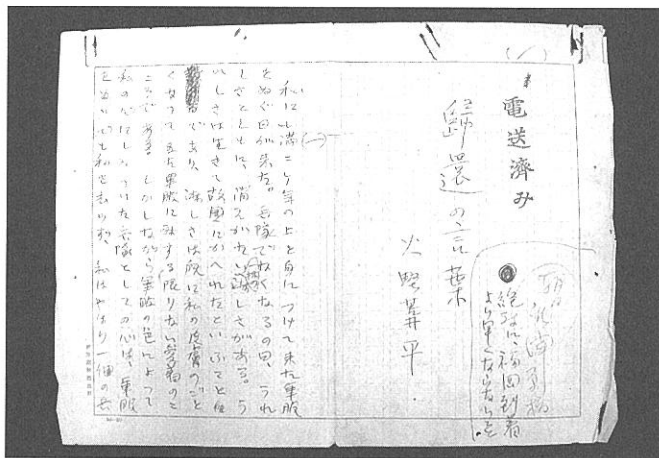 (一)
電送済み
絶対に、福岡到着
より早くならないこと
歸還の言葉
火野葦平
(一)
私にも満二ヶ年の上を身につけて来た軍服
をぬぐ日が来た。兵隊でなくなるの日、うれ
しさとともに、消えがたい淋しさがある。う
れしさは生きて故國にかへれたといふこと
であり、淋しさは既に私の皮膚のごと
くなつてゐた軍服に対する限りない愛着のこ
ころである。しかしながら軍服の色によつて
私の心にしみついた兵隊としての心は、軍服
をぬいでも私を去らず、私はやはり一個の兵